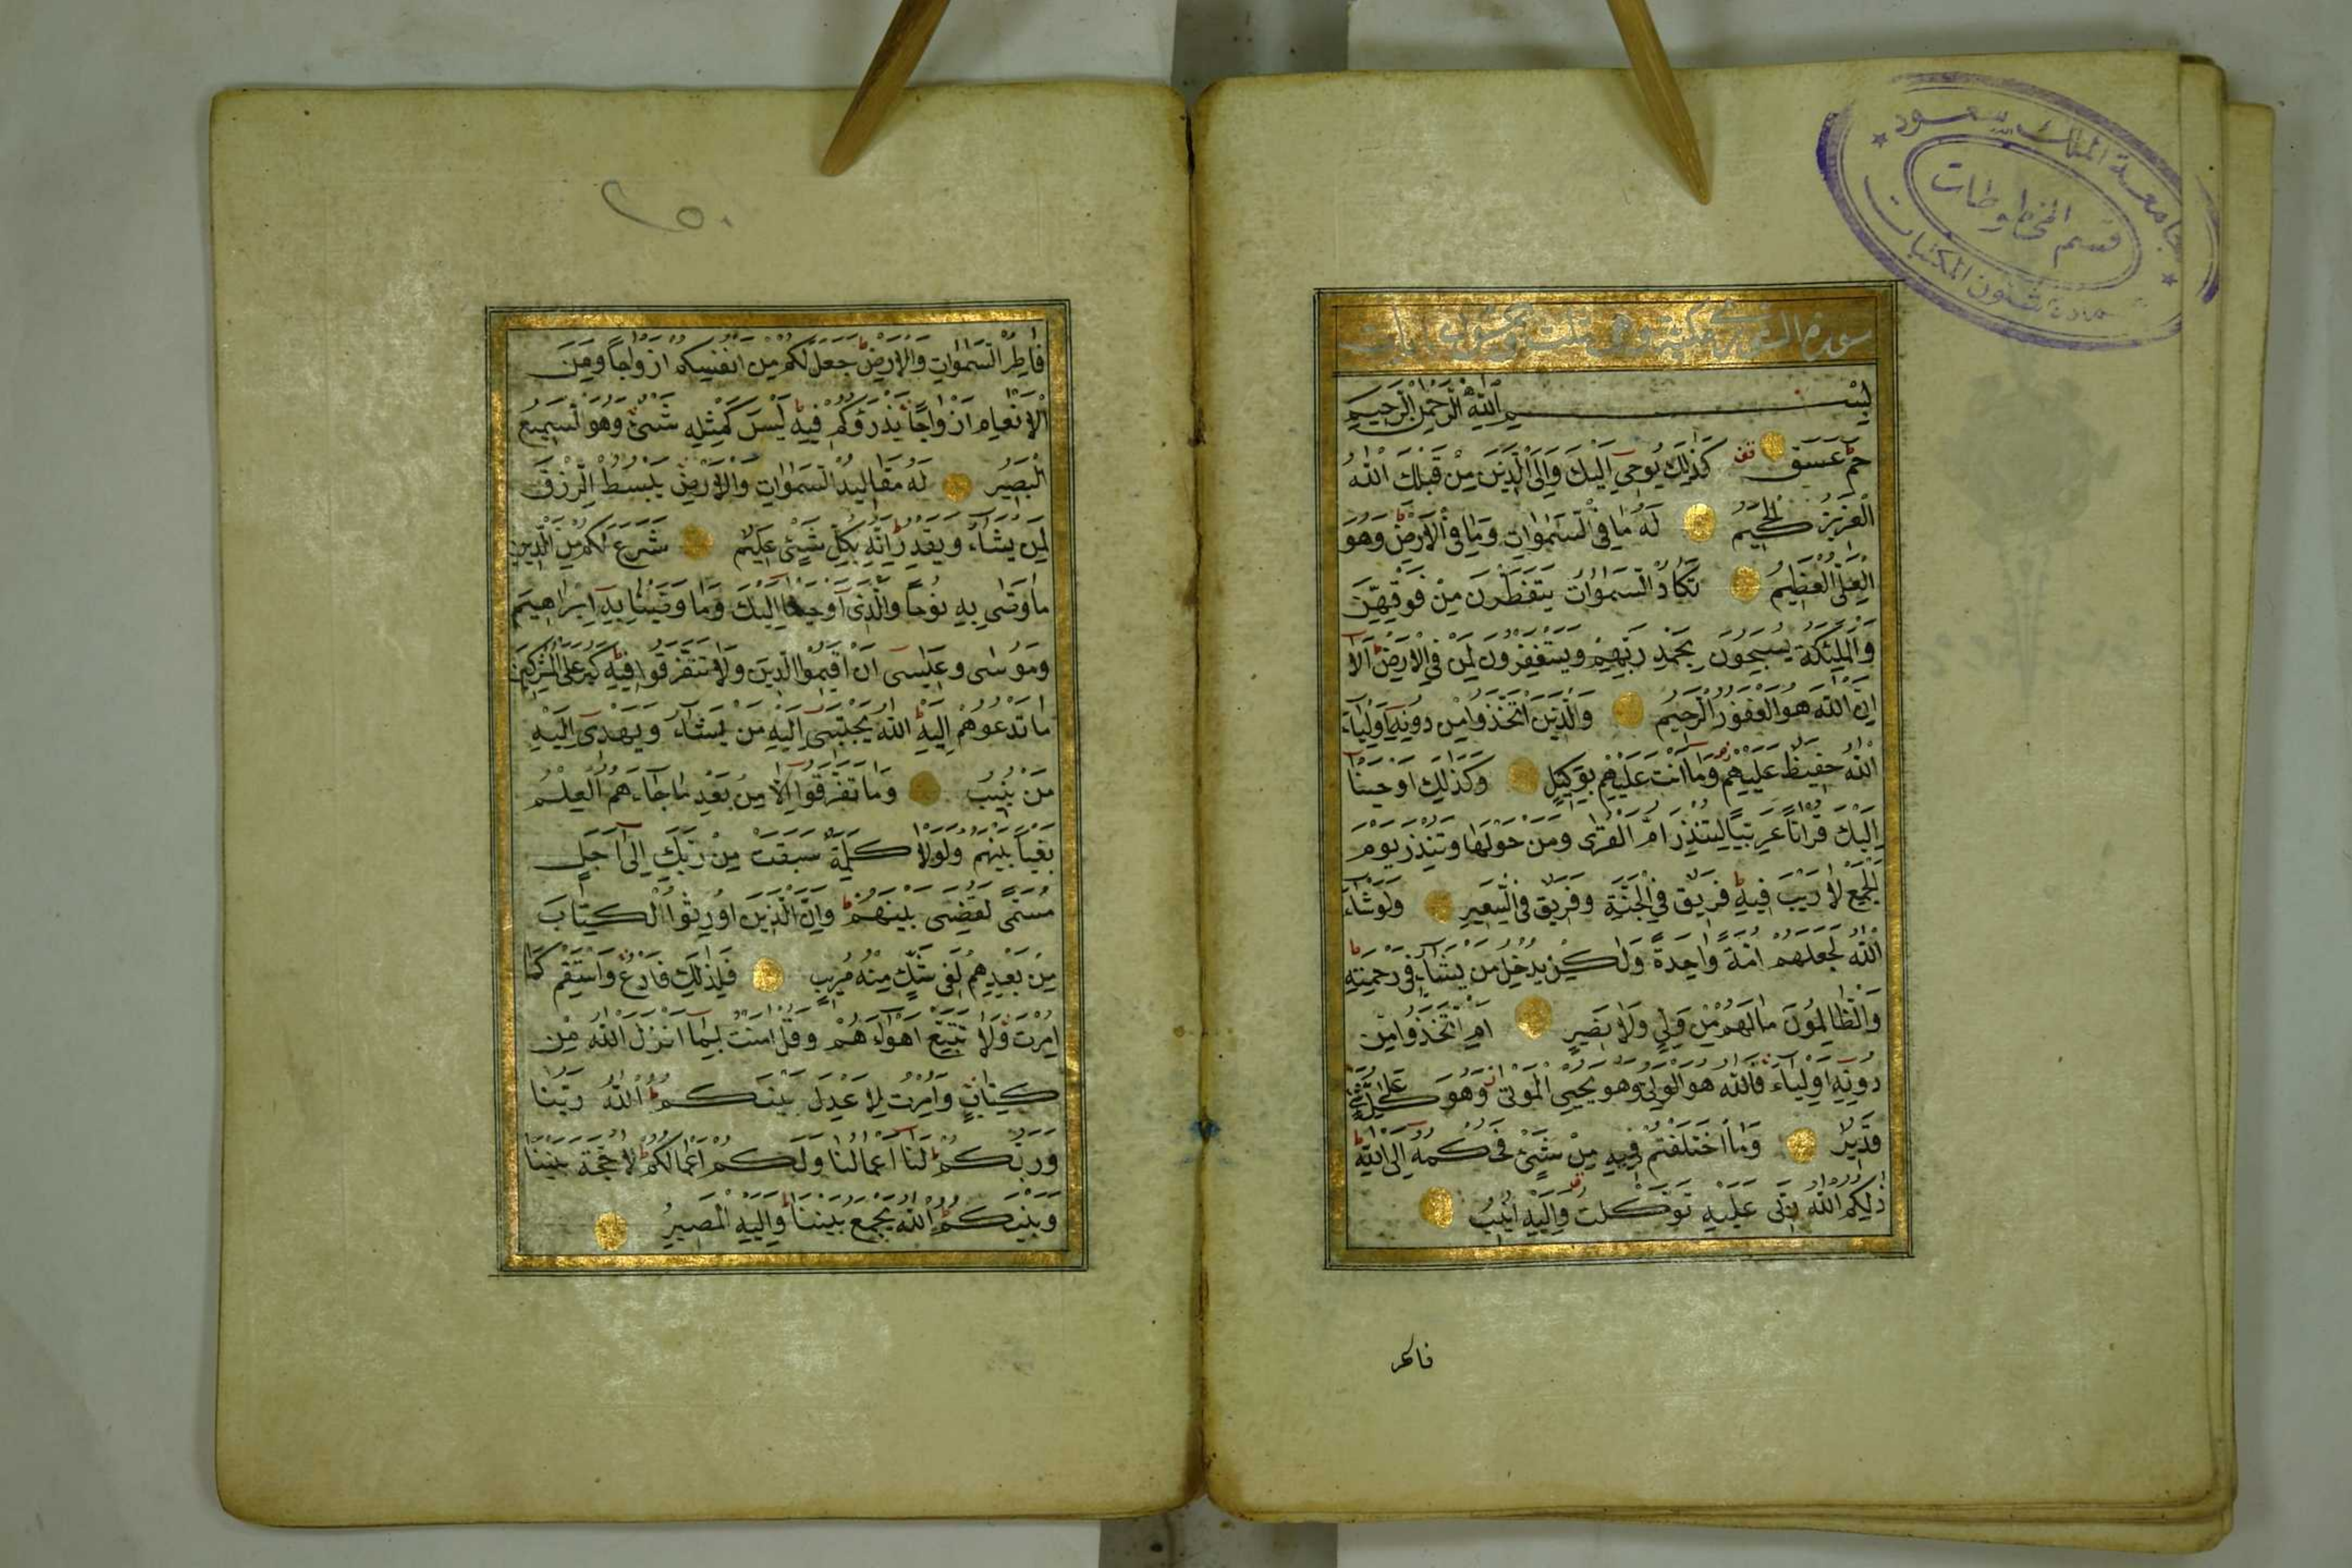 جامعة الملك سعود
قسم المخطوطات
عمادة شئون المكتبات
سورة الشورى مكية وهي ثلث وخمسون ايات
بِسْمِ اللَّهِ الرَّحْمٰنِ الرَّحِيمِ
حٰمٓ عٓسٓقٓ كَذٰلِكَ يُوحِي اِلَيْكَ وَاِلَى الَّذِينَ مِنْ قَبْلِكَ اللَّهُ
الْعَزِيزُ الْحَكِيمُ لَهُ مَا فِي السَّمٰوَاتِ وَمَا فِي الْاَرْضِ وَهُوَ
الْعَلِيُّ الْعَظِيمُ تَكَادُ السَّمٰوَاتُ يَتَفَطَّرْنَ مِنْ فَوْقِهِنَّ
وَالْمَلٰئِكَةُ يُسَبِّحُونَ بِحَمْدِ رَبِّهِمْ وَيَسْتَغْفِرُونَ لِمَنْ فِي الْاَرْضِ اَلَا
اِنَّ اللَّهَ هُوَ الْغَفُورُ الرَّحِيمُ وَالَّذِينَ اتَّخَذُوا مِنْ دُونِهِ اَوْلِيَاءَ
اللَّهُ حَفِيظٌ عَلَيْهِمْ وَمَا اَنْتَ عَلَيْهِمْ بِوَكِيلٍ وَكَذٰلِكَ اَوْحَيْنَا
اِلَيْكَ قُرْاٰنًا عَرَبِيًّا لِتُنْذِرَ اُمَّ الْقُرٰى وَمَنْ حَوْلَهَا وَتُنْذِرَ يَوْمَ
الْجَمْعِ لَا رَيْبَ فِيهِ فَرِيقٌ فِي الْجَنَّةِ وَفَرِيقٌ فِي السَّعِيرِ وَلَوْ شَاءَ
اللَّهُ لَجَعَلَهُمْ اُمَّةً وَاحِدَةً وَلٰكِنْ يُدْخِلُ مَنْ يَشَاءُ فِي رَحْمَتِهِ
وَالظَّالِمُونَ مَا لَهُمْ مِنْ وَلِيٍّ وَلَا نَصِيرٍ اَمِ اتَّخَذُوا مِنْ
دُونِهِ اَوْلِيَاءَ فَاللَّهُ هُوَ الْوَلِيُّ وَهُوَ يُحْيِي الْمَوْتٰى وَهُوَ عَلٰى كُلِّ شَيْءٍ
قَدِيرٌ وَمَا اخْتَلَفْتُمْ فِيهِ مِنْ شَيْءٍ فَحُكْمُهُ اِلَى اللَّهِ
ذٰلِكُمُ اللَّهُ رَبِّي عَلَيْهِ تَوَكَّلْتُ وَاِلَيْهِ اُنِيبُ
فاطر
٢٥٠
فَاطِرُ السَّمٰوَاتِ وَالْاَرْضِ جَعَلَ لَكُمْ مِنْ اَنْفُسِكُمْ اَزْوَاجًا وَمِنَ
الْاَنْعَامِ اَزْوَاجًا يَذْرَؤُكُمْ فِيهِ لَيْسَ كَمِثْلِهِ شَيْءٌ وَهُوَ السَّمِيعُ
الْبَصِيرُ لَهُ مَقَالِيدُ السَّمٰوَاتِ وَالْاَرْضِ يَبْسُطُ الرِّزْقَ
لِمَنْ يَشَاءُ وَيَقْدِرُ اِنَّهُ بِكُلِّ شَيْءٍ عَلِيمٌ شَرَعَ لَكُمْ مِنَ الدِّينِ
مَا وَصّٰى بِهِ نُوحًا وَالَّذِي اَوْحَيْنَا اِلَيْكَ وَمَا وَصَّيْنَا بِهِ اِبْرَاهِيمَ
وَمُوسٰى وَعِيسٰى اَنْ اَقِيمُوا الدِّينَ وَلَا تَتَفَرَّقُوا فِيهِ كَبُرَ عَلَى الْمُشْرِكِينَ
مَا تَدْعُوهُمْ اِلَيْهِ اللَّهُ يَجْتَبِي اِلَيْهِ مَنْ يَشَاءُ وَيَهْدِي اِلَيْهِ
مَنْ يُنِيبُ وَمَا تَفَرَّقُوا اِلَّا مِنْ بَعْدِ مَا جَاءَهُمُ الْعِلْمُ
بَغْيًا بَيْنَهُمْ وَلَوْلَا كَلِمَةٌ سَبَقَتْ مِنْ رَبِّكَ اِلٰى اَجَلٍ
مُسَمًّى لَقُضِيَ بَيْنَهُمْ وَاِنَّ الَّذِينَ اُورِثُوا الْكِتَابَ
مِنْ بَعْدِهِمْ لَفِي شَكٍّ مِنْهُ مُرِيبٍ فَلِذٰلِكَ فَادْعُ وَاسْتَقِمْ كَمَا
اُمِرْتَ وَلَا تَتَّبِعْ اَهْوَاءَهُمْ وَقُلْ اٰمَنْتُ بِمَا اَنْزَلَ اللَّهُ مِنْ
كِتَابٍ وَاُمِرْتُ لِاَعْدِلَ بَيْنَكُمْ اللَّهُ رَبُّنَا
وَرَبُّكُمْ لَنَا اَعْمَالُنَا وَلَكُمْ اَعْمَالُكُمْ لَا حُجَّةَ بَيْنَنَا
وَبَيْنَكُمْ اللَّهُ يَجْمَعُ بَيْنَنَا وَاِلَيْهِ الْمَصِيرُ